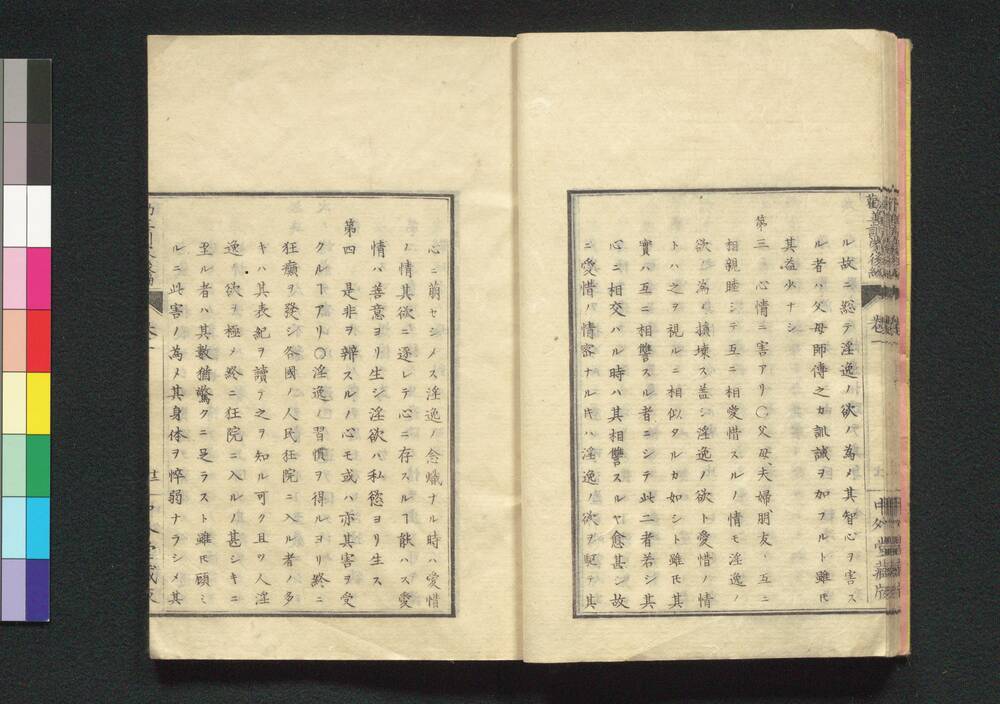 ル故ニ総テ淫逸ノ欲ノ為メ其智心ヲ害ス
ル者ハ父母師傅之カ訓誡ヲ加フルト雖𪜈
其益少ナシ
第三 心情ニ害アリ〇父母、夫婦、朋友、互ニ
相親睦シテ互ニ相愛惜スルノ情モ淫逸ノ
欲ニ溺レ損壊ス盖シ淫逸ノ欲ト愛惜ノ情
トハ之ヲ視ルニ相似タルカ如シト雖𪜈其
實ハ互ニ相讐スル者ニシテ此二者若シ其
心ニ相交ハル時ハ其相讐スルヤ愈甚シ故
ニ愛惜ノ情
ナル𪜈ハ淫逸ノ欲ヲ駆テ其
心ニ萠セシメス淫逸ノ念熾ナル時ハ愛惜
ノ情其欲ニ逐レテ心ニ存スルヿ能ハス愛
情ハ善意ヨリ生シ淫欲ハ私慾ヨリ生ス
第四 是非ヲ辨スルノ心モ或ハ亦其害ヲ受
クルヿアリ〇淫逸ノ習慣ヲ得ルヨリ終ニ
狂癲ヲ發シ各國ノ人民狂院ニ入ル者ノ多
キハ其表紀ヲ讀テ之ヲ知ル可ク且ツ人淫
逸ノ欲ヲ極メ終ニ狂院ニ入ルノ甚シキニ
至ル者ハ其數猶驚クニ足ラスト雖𪜈顧ミ
ルニ此害ノ為メ其身体ヲ悴弱ナラシメ其